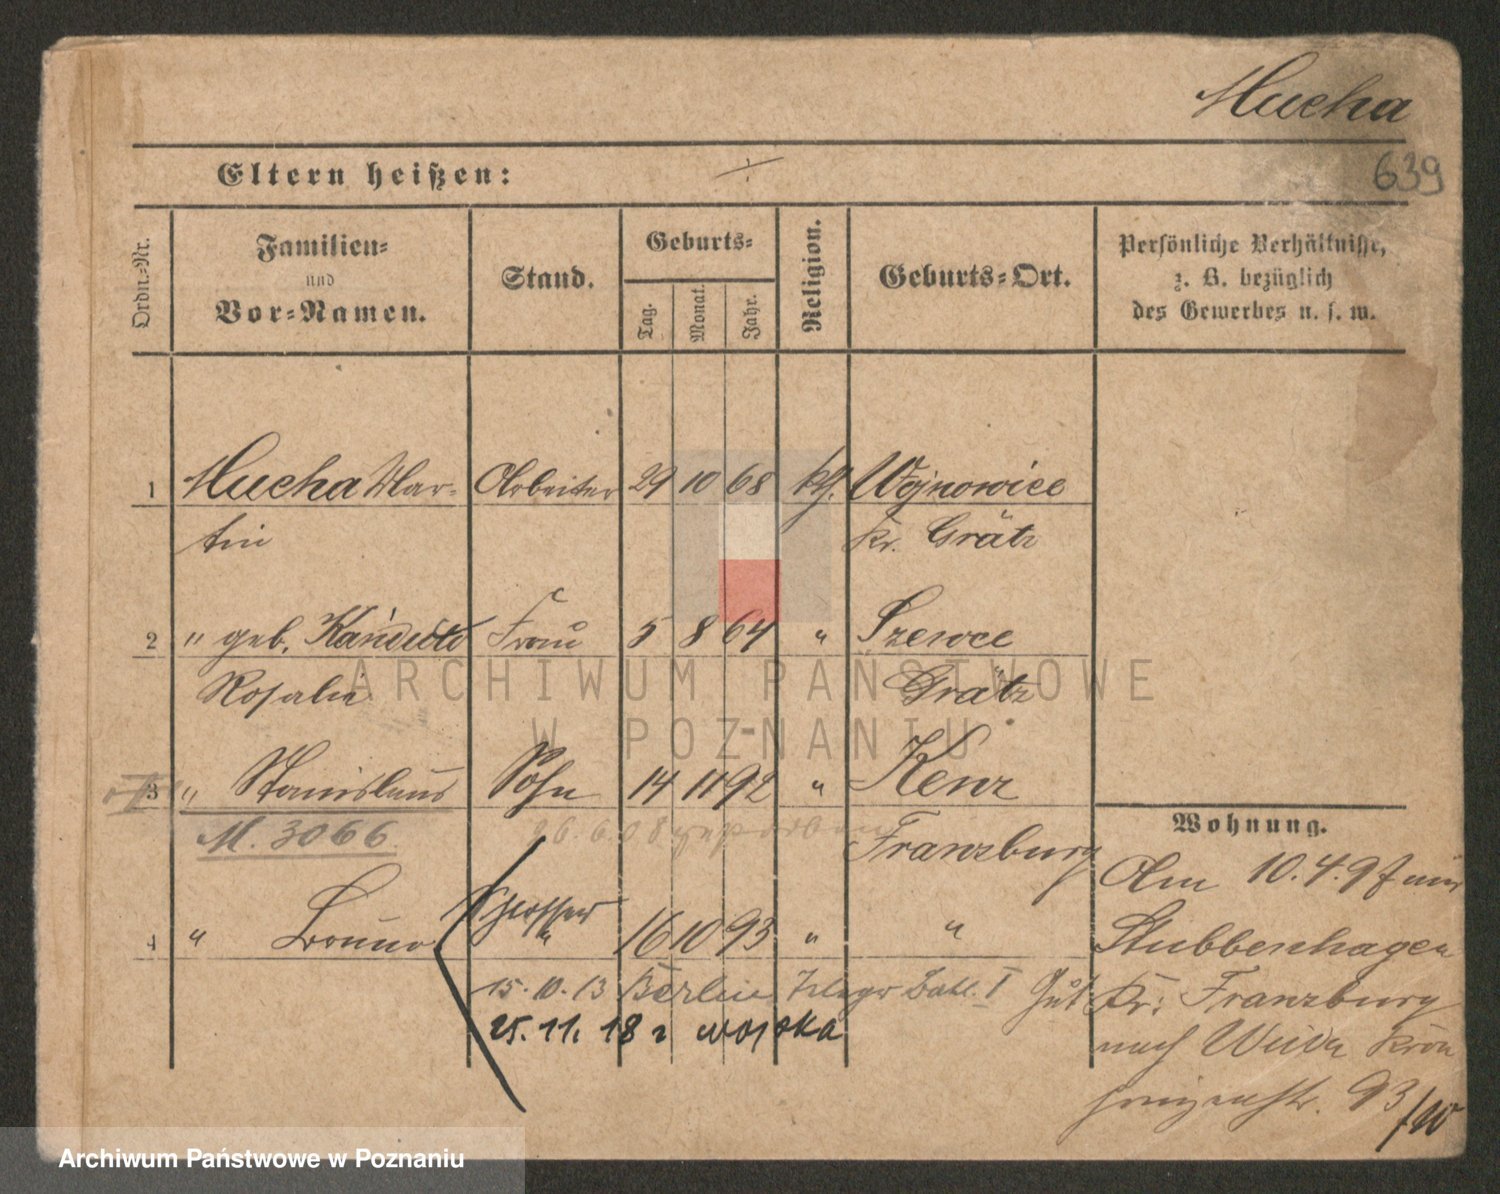 Mucha
639
Eltern heißen:
Ordn.-Nr.
Familien-
und
Vor-Namen.
Stand.
Geburts-
Tag.
Monat.
Jahr.
Religion.
Geburts-Ort.
Persönliche Verhältnisse,
z. B. bezüglich
des Gewerbes u. s. w.
1 Mucha Mar- Arbeiter 29 10 68 kth. Wojnowice
tin Kr. Grätz
2 " geb. Frau 5 8 64 " Szewce
Rosalie Grätz
3 " Stanislaus Sohn 14 11 92 " Kenz
M. 3066 26.6.08 gestorben Franzburg
Wohnung.
Am 10.4.97 von
Schlosser
4 " Bruno " 16 10 93 " " Stubbenhagen
15.10.13 Berlin Telegr. Batl. I Gut Kr. Franzburg
25.11.18 z wojska
nach Kron
prinzenstr. 93
ARCHIWUM PAŃSTWOWE
W POZNANIU
Archiwum Państwowe w Poznaniu